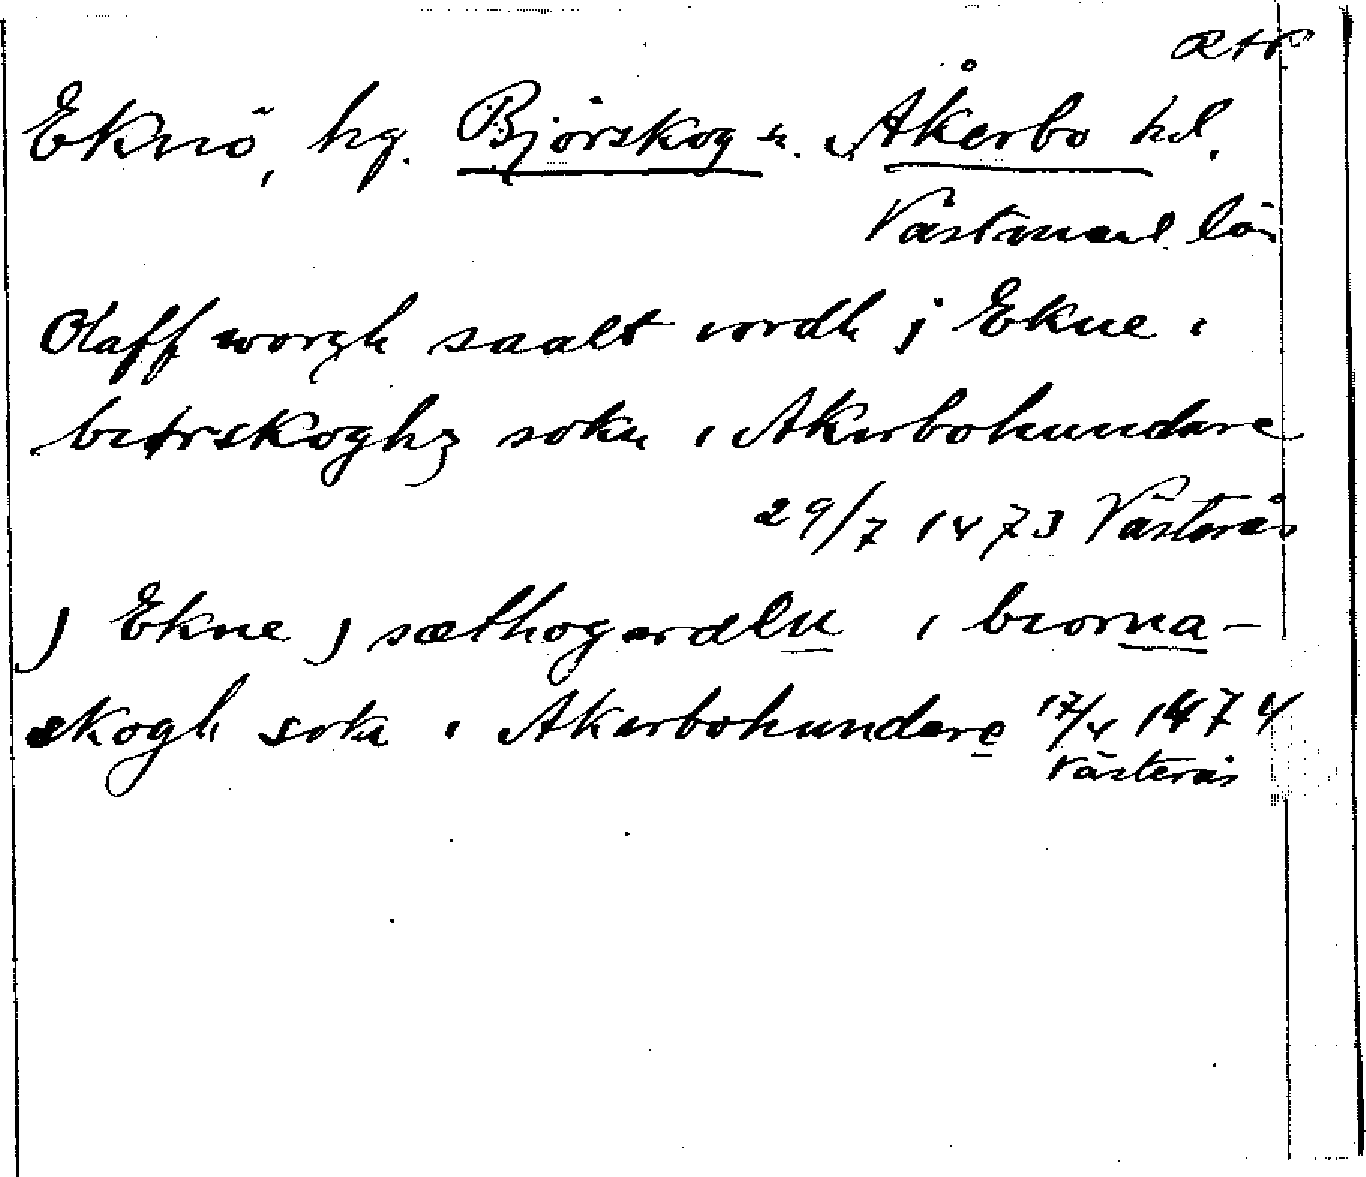 RAP
Eknö, hg. Björskog sn. Åkerbo hd.
Västmanl. län
Olaff worgh saalt iordh j Ekne i
biørskoghz sokn i Akerbohundare
29/7 1473 Västerås
j Ekne j sæthogarden i biorna-
skogh sokn i Akerbohundere 17/4 1474
Västerås